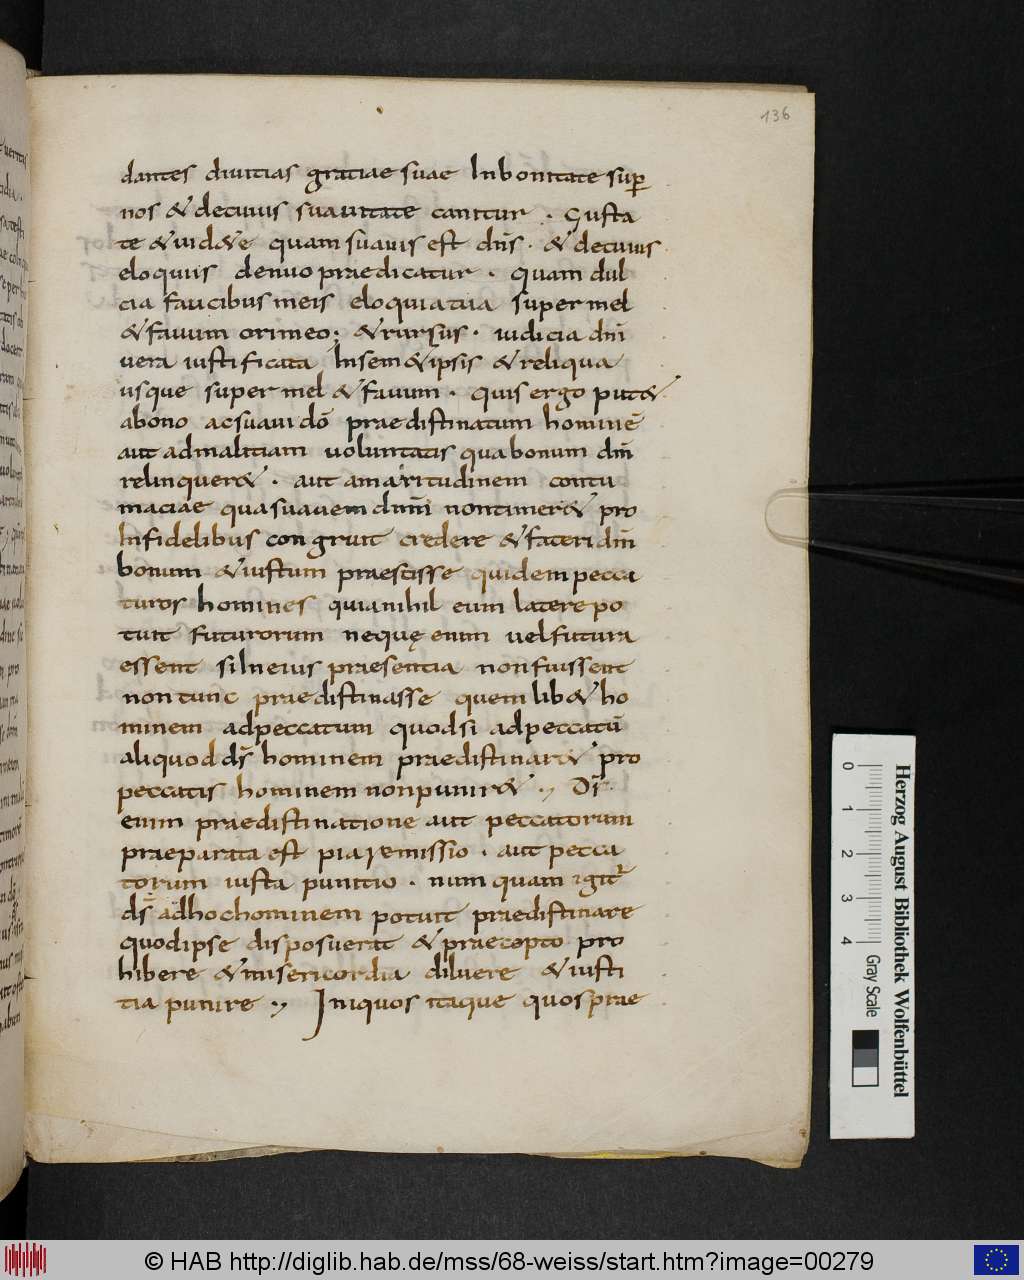 136
dantes diuitias gratiae suae Inbonitate sup̲
nos & decuius suauitate canitur . Gusta
te & uid&e quam suauis est dn̄s . & decuius
eloquiis denuo praedicatur . quam dul
cia faucibus meis eloquia tua super mel
& fauum ori meo ; & rursus . iudicia dn̄i
uera iustificata Insem&ipsis & reliqua
usque super mel & fauum . quis ergo put&
abono ac suaui dō praedistinatum hominē
aut admalitiam uoluntatis qua bonum dn̄m
relinquer& . aut amaritudinem contu
maciae qua suauem dn̄m non timer& pro
Infidelibus congruit credere & fateri dn̄m
bonum & iustum praescisse quidem pecca
turos homines quia nihil eum latere po
tuit futurorum neque enim uel futura
essent si In eius praesentia non fuissent
non tunc praedistinasse quem lib& ho
minem adpeccatum quod si adpeccatū
aliquod ds̄ hominem praedistinar& pro
peccatis hominem non punir& . Dī
enim praedistinatione aut peccatorum
praeparata est pia remissio . aut pecca
torum iusta punitio . num quam igit̄
ds̄ adhoc hominem potuit praedistinare
quod ipse disposuerat & praecepto pro
hibere & misericordia diluere & iusti
tia punire . Iniquos itaque quos prae
0
1
2
3
4
Gray Scale
Herzog August Bibliothek Wolfenbüttel
© HAB http://diglib.hab.de/mss/68-weiss/start.htm?image=00279